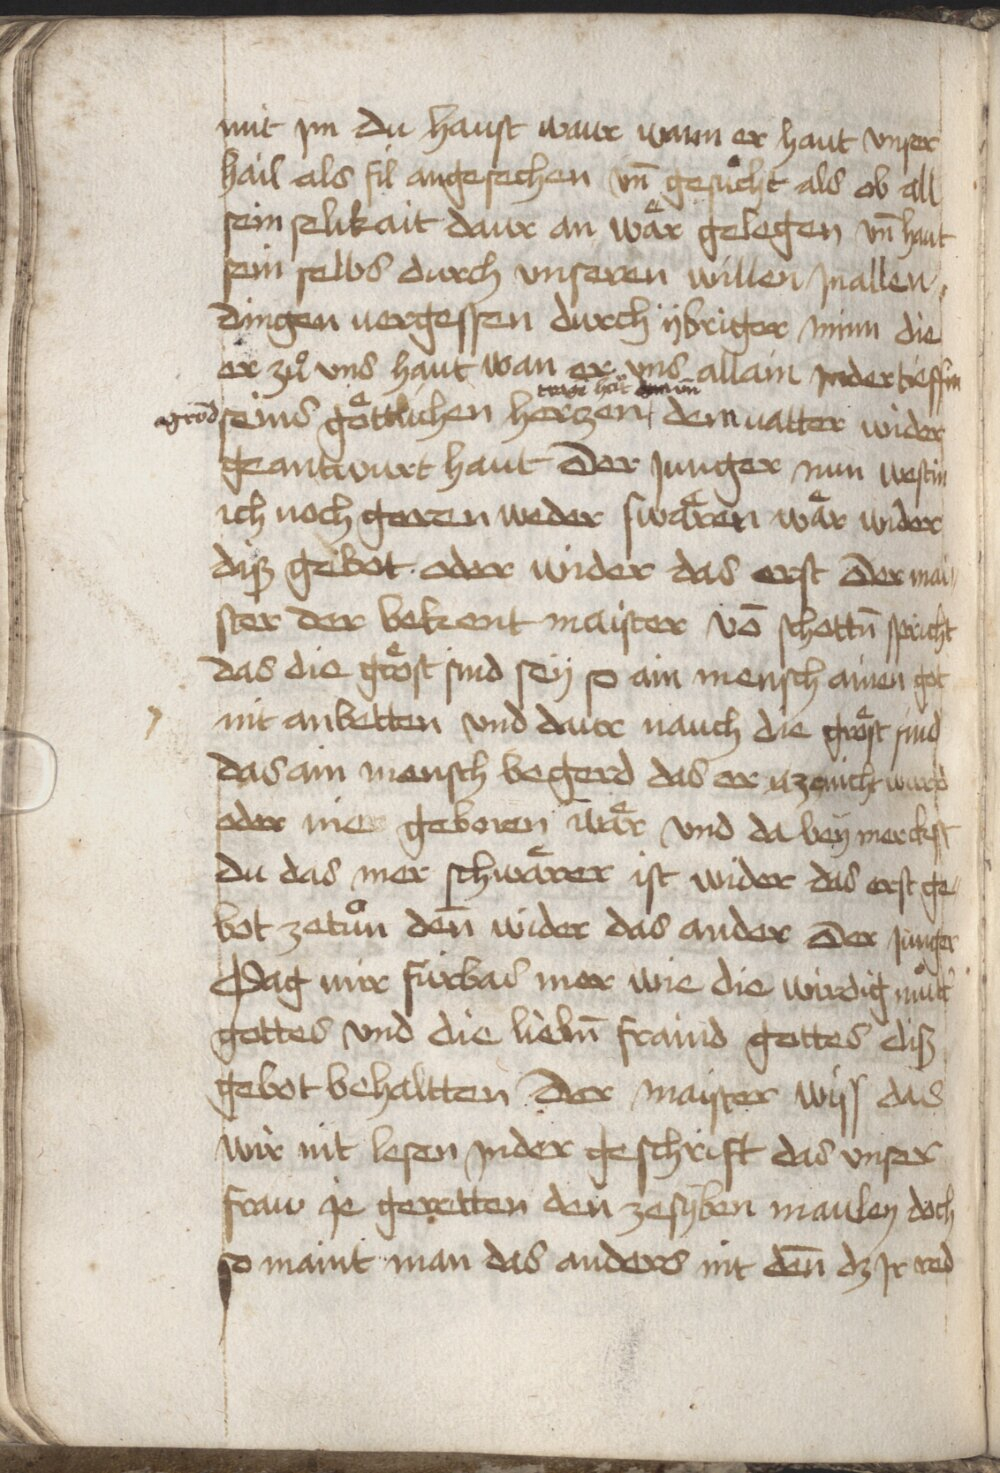 mit im du haust waur wann er haut vnser
hail als fil angesechen vn̄ gesůcht als ob all
sein selikait daur an wäͤr gelegen vn̄ haut
sein selbs durch vnseren willen Jn allen
dingen vergessen durch ÿbriger minn die
er zů vns haut wan er vns allain Jn der tieffin
grōd seins göttlichen herzen dem uatter wider
geantwurt haut Der Junger nun westin
ich noch geren weder swären wär wider
diß gebot oder wider das erst Der mai
ster der bekent maister vō schottn̄ spricht
das die gröst sind seÿ so ain mensch ainen got
nit anbetten und daur nauch die gröst sind
das ain mensch begerd das er ze nicht wurd
oder nie geboren wär vnd da beÿ merckst
du das mer schwärer ist wider das erst ge
bot zetůn den̄ wider das ander Der Junger
Sag mir fürbas mer wie die wirdig můtt̄
gottes vnd die liebn̄ fraind gottes diß
gebot behaltten Der maister wiss das
wir nit lesen Jn der geschrift das vnser
fraw je geretten den ze syben maulen doch
so maint man das anders nit den̄ dz Jr red